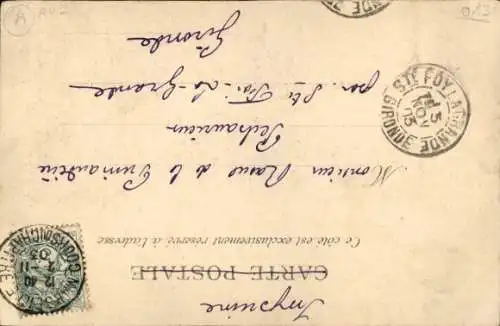 Imprimé
CARTE POSTALE
Ce côté est exclusivement réservé à l'adresse
Monsieur de la
Restaurateur
par Ste Foi-la-Grande
Gironde
STE FOY LA GRANDE
GIRONDE
15
NOV
05
12 40
05